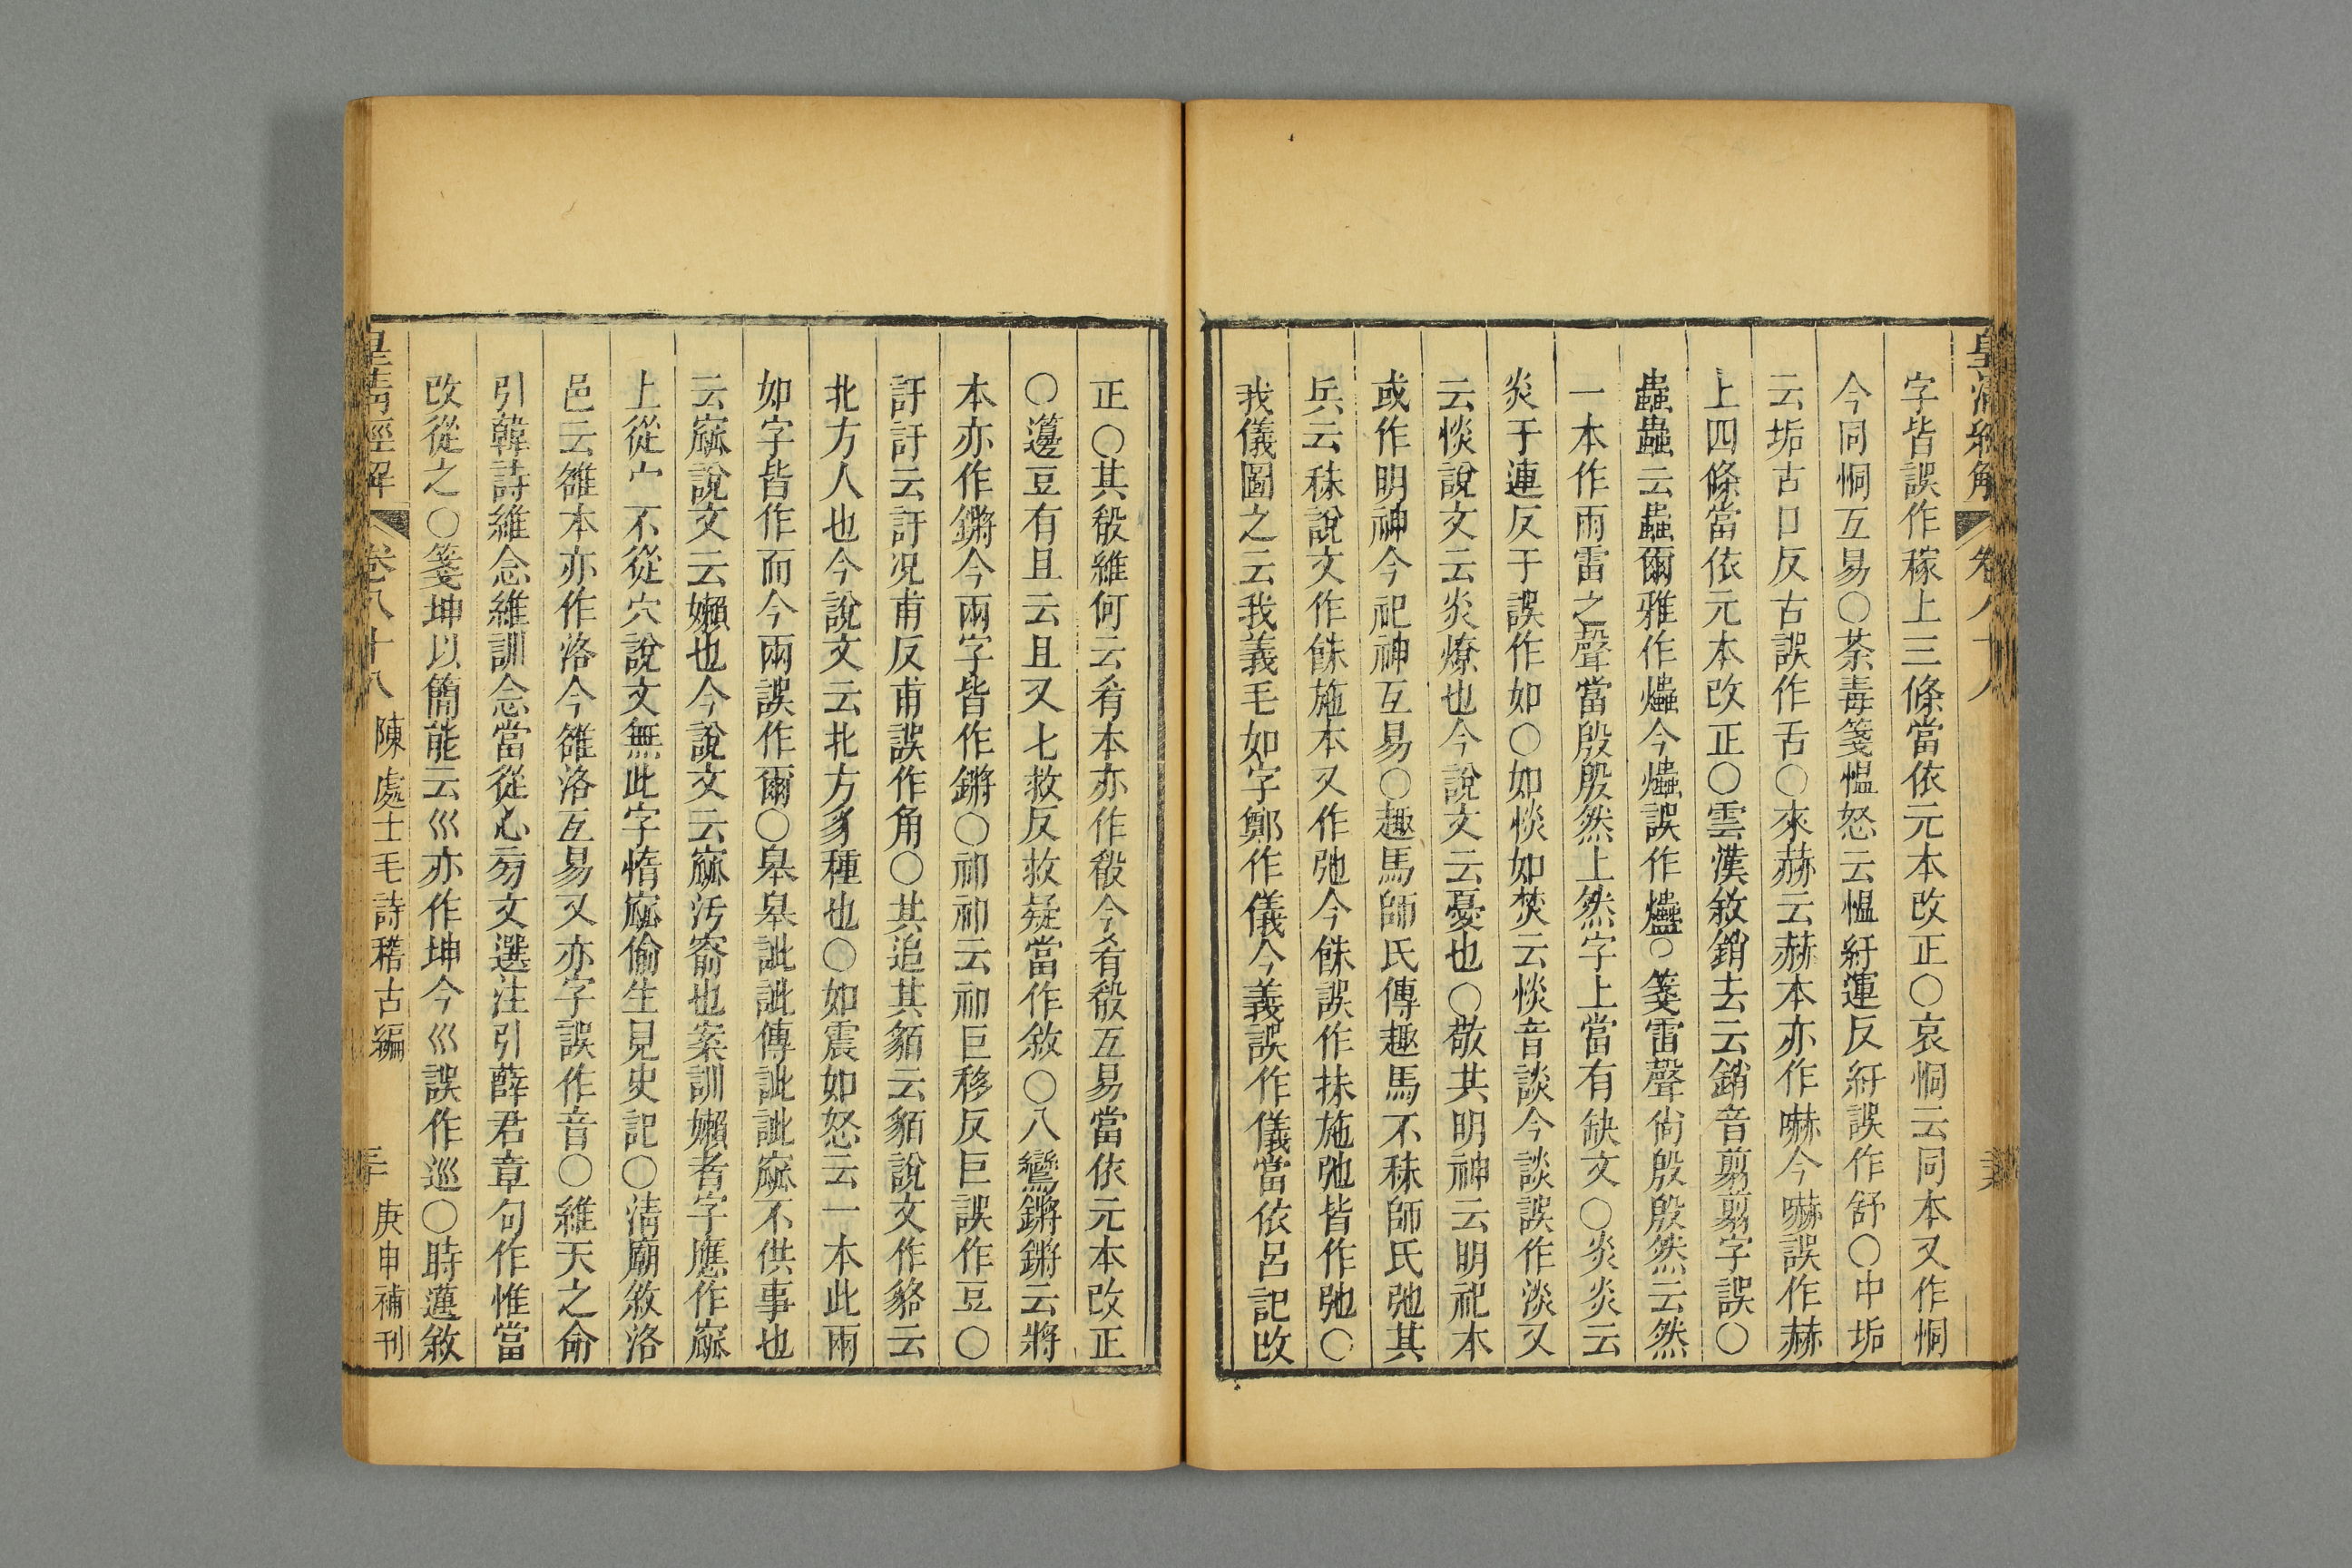 皇清經解 卷八十八
字皆誤作稼上三條當依元本改正○哀恫云同本又作恫
今同恫互易○荼毒箋愠怒云愠紆運反紆誤作舒○中垢
云垢古口反古誤作舌○來赫云赫本亦作嚇今嚇誤作赫
上四條當依元本改正○雲漢敘銷去云銷音翦翦字誤○
蟲蟲云蟲爾雅作爞今爞誤作爐○箋雷聲尙殷殷然云然
一本作雨雷之聲當殷殷然上然字上當有缺文○炎炎云
炎于連反于誤作如○如惔如焚云惔音談今談誤作淡又
云惔說文云炎燎也今說文云憂也○敬共明神云明祀本
或作明神今祀神互易○趣馬師氏傳趣馬不秣師氏弛其
兵云秣說文作䬴施本又作弛今䬴誤作抹施弛皆作弛○
我儀圖之云我義毛如字鄭作儀今義誤作儀當依呂記改
正○其殽維何云肴本亦作殽今肴殽互易當依元本改正
○籩豆有且云且又七救反救疑當作敘○八鸞鏘鏘云將
本亦作鏘今兩字皆作鏘○祁祁云祁巨移反巨誤作豆○
訏訏云訏況甫反甫誤作角○其追其貊云貊說文作貉云
北方人也今說文云北方豸種也○如震如怒云一本此兩
如字皆作而今兩誤作爾○皐皐訿訿傳訿訿窳不供事也
云窳說文云嬾也今說文云窳汚窬也案訓嬾者字應作㼌
上從宀不從穴說文無此字惰窳偷生見史記○淸廟敘洛
邑云雒本亦作洛今雒洛互易又亦字誤作音○維天之命
引韓詩維念維訓念當從心旁文選注引薛君章句作惟當
改從之○箋坤以簡能云巛亦作坤今巛誤作巡○時邁敘
皇淸經解 卷八十八 陳處士毛詩稽古編 庚申補刊